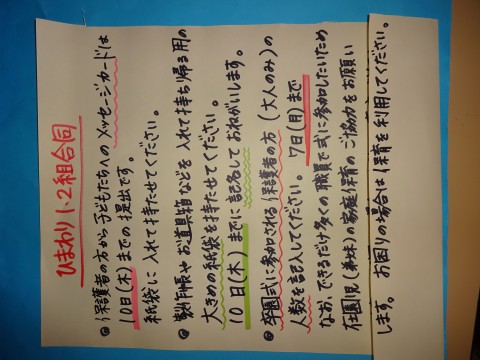 ひまわり1・2組合同
◎保護者の方から子どもたちへのメッセージカードは
10日(木)までの提出です。
紙袋に入れて持たせてください。
◎製作帳やお道具箱などを入れて持ち帰る用の
大きめの紙袋を持たせてください。
10日(木)までに記名しておねがいします。
◎卒園式に参加される保護者の方(大人のみ)の
人数を記入してください。7日(月)まで
なお、できるだけ多くの職員で式に参加したいため
在園児(弟妹)の家庭保育のご協力をお願い
します。お困りの場合は保育を利用してください。